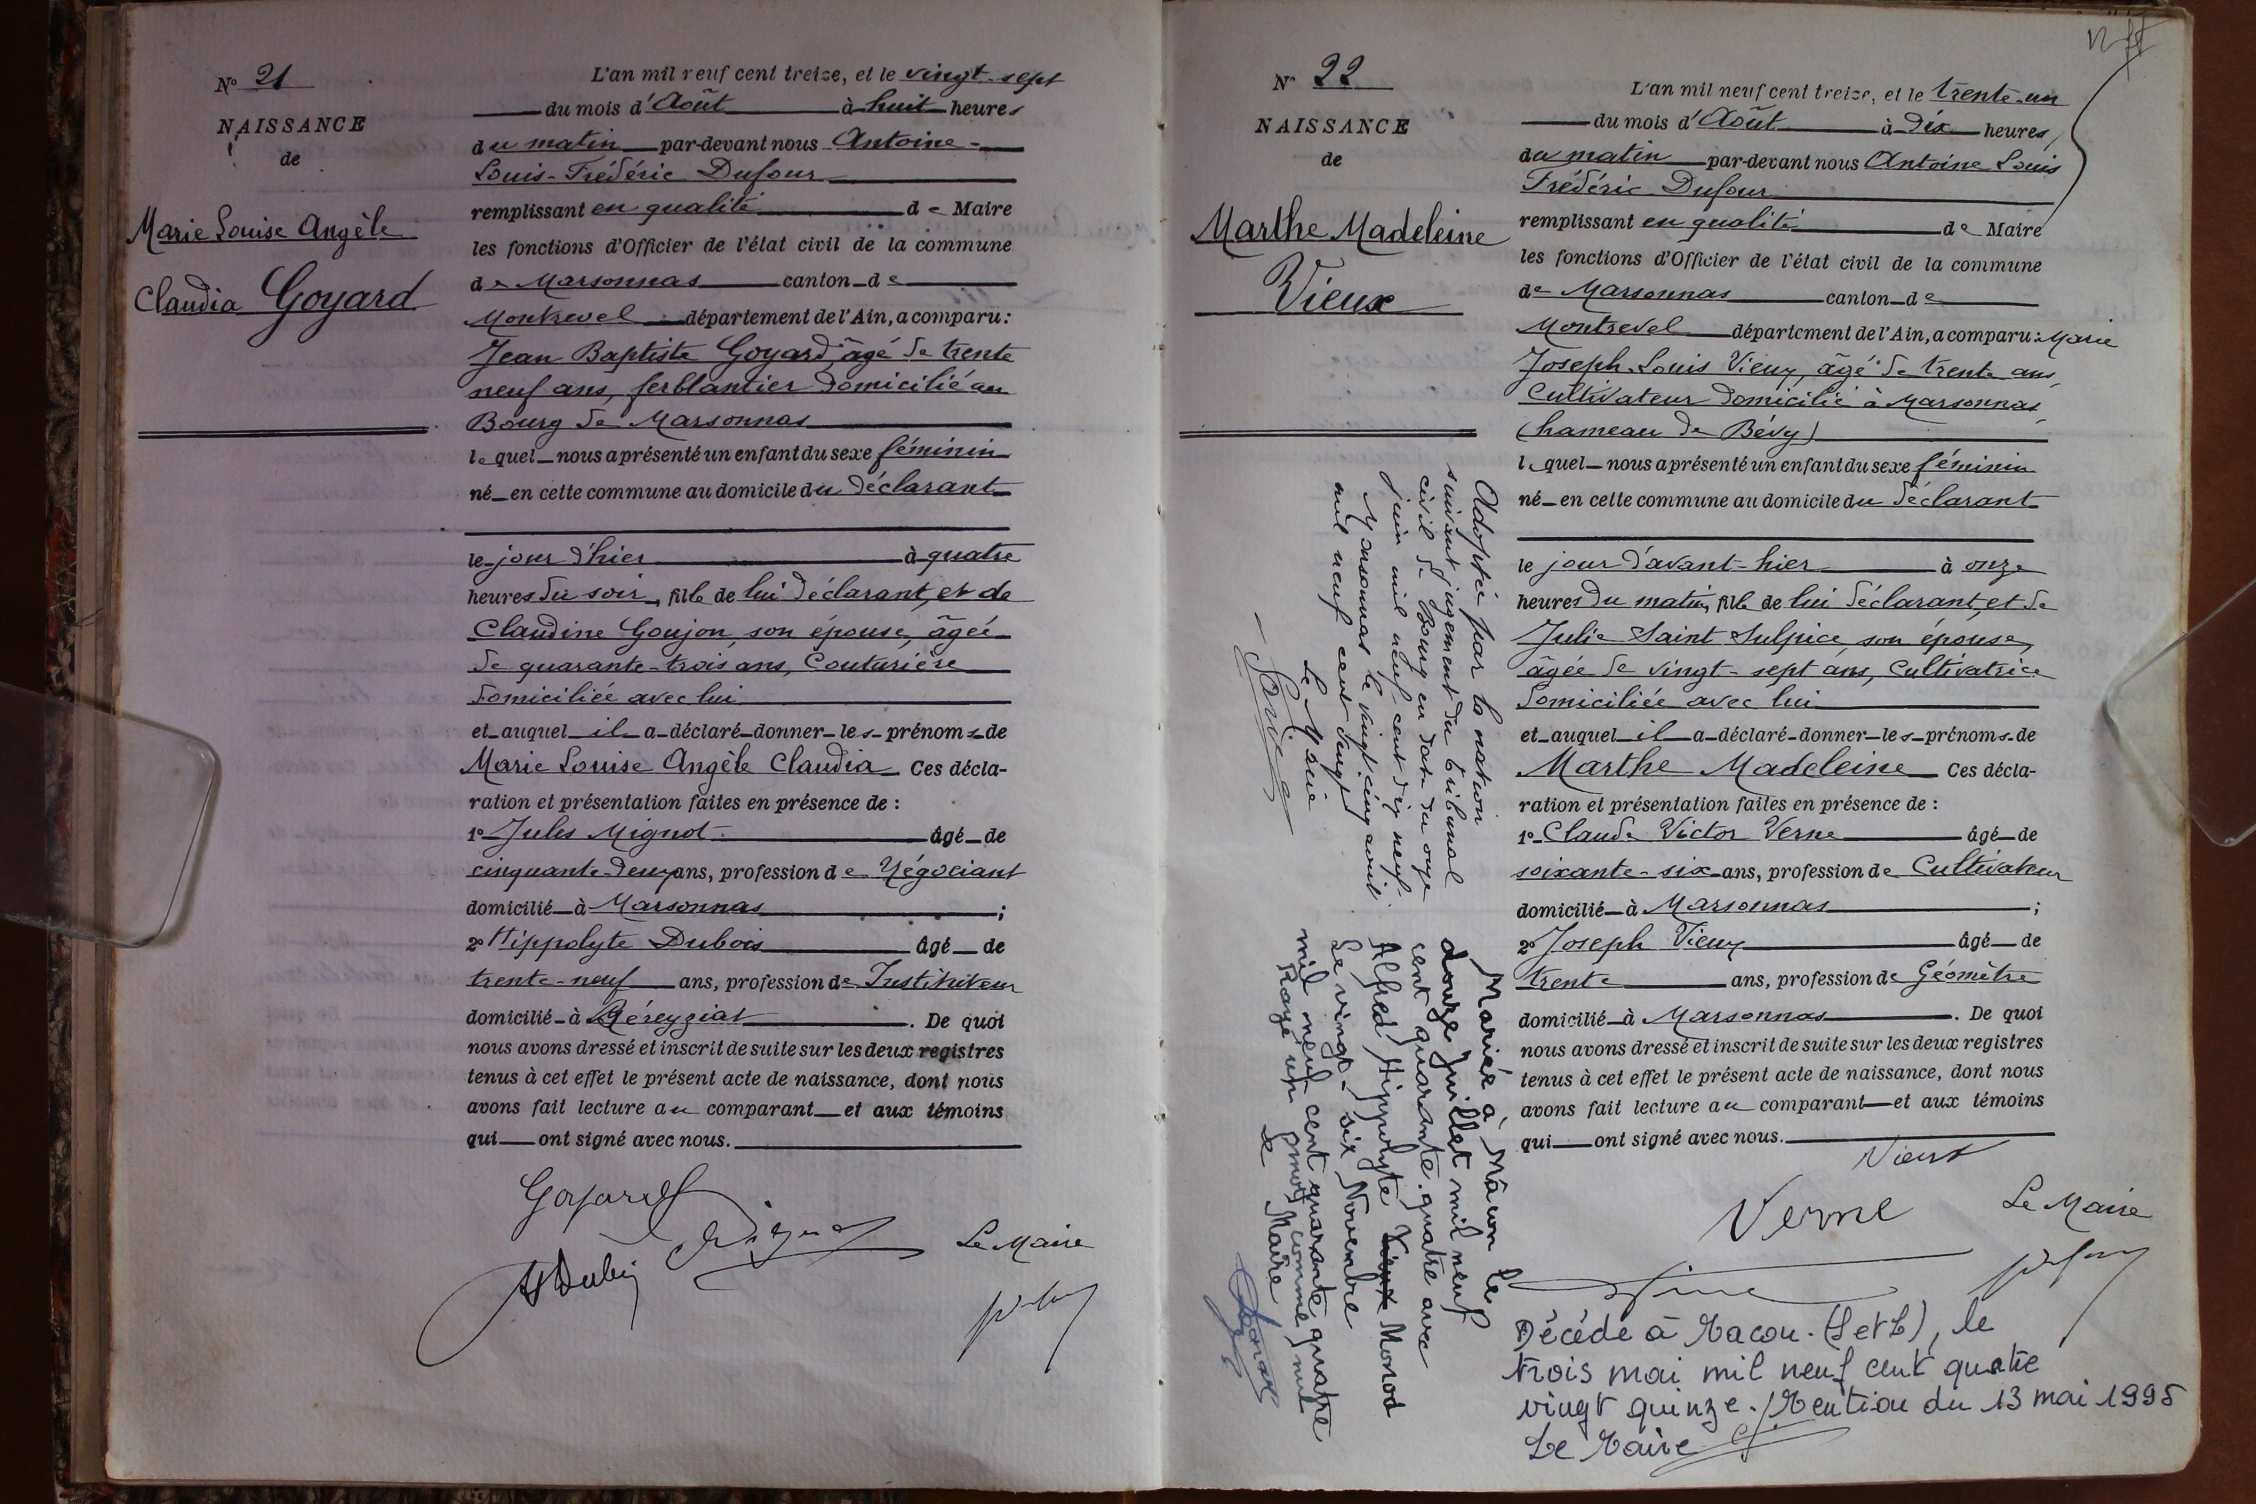 Nº 21
NAISSANCE
de
Marie Louise Angèle
Claudia Goyard
L'an mil neuf cent treize, et le vingt-sept
du mois d'Août à huit heures
du matin par-devant nous Antoine-
Louis-Frédéric Dufour
remplissant en qualité de Maire
les fonctions d'Officier de l'état civil de la commune
de Marsonnas canton de
Montrevel département de l'Ain, a comparu :
Jean Baptiste Goyard, âgé de trente
neuf ans, ferblantier domicilié au
Bourg de Marsonnas
lequel nous a présenté un enfant du sexe féminin
né en cette commune au domicile du déclarant
le jour d'hier à quatre
heures du soir, fille de lui déclarant, et de
Claudine Goujon, son épouse, âgée
de quarante-trois ans, Couturière
domiciliée avec lui
et auquel il a déclaré donner les prénoms de
Marie Louise Angèle Claudia Ces décla-
ration et présentation faites en présence de :
1º Jules Mignot âgé de
cinquante deux ans, profession de Négociant
domicilié à Marsonnas ;
2º Hippolyte Dubois âgé de
trente-neuf ans, profession de Instituteur
domicilié à Béreyziat . De quoi
nous avons dressé et inscrit de suite sur les deux registres
tenus à cet effet le présent acte de naissance, dont nous
avons fait lecture au comparant et aux témoins
qui ont signé avec nous.
Goyard
Mignot
HDubois
Le Maire
Nº 22
NAISSANCE
de
Marthe Madeleine
Vieux
Adoptée par la nation
suivant jugement du tribunal
civil de Bourg en date du onze
juin mil neuf cent dix neuf.
Marsonnas le vingt cinq avril
mil neuf cent vingt
Le Maire
Mariée à Mâcon le
douze juillet mil neuf
cent quarante quatre avec
Alfred Hippolyte Vieux Monod
Le vingt-six Novembre
mil neuf cent quarante quatre
Rayé un mot comme nul
Le Maire
L'an mil neuf cent treize, et le trente-un
du mois d'Août à dix heures
du matin par-devant nous Antoine Louis
Frédéric Dufour
remplissant en qualité de Maire
les fonctions d'Officier de l'état civil de la commune
de Marsonnas canton de
Montrevel département de l'Ain, a comparu : Marie
Joseph Louis Vieux, âgé de trente ans,
Cultivateur domicilié à Marsonnas
(hameau de Bévy)
lequel nous a présenté un enfant du sexe féminin
né en cette commune au domicile du déclarant
le jour d'avant-hier à onze
heures du matin, fille de lui déclarant, et de
Julie Saint Sulpice, son épouse,
âgée de vingt-sept ans, Cultivatrice
domiciliée avec lui
et auquel il a déclaré donner les prénoms de
Marthe Madeleine Ces décla-
ration et présentation faites en présence de :
1º Claude Victor Verne âgé de
soixante-six ans, profession de Cultivateur
domicilié à Marsonnas ;
2º Joseph Vieux âgé de
trente ans, profession de Géomètre
domicilié à Marsonnas . De quoi
nous avons dressé et inscrit de suite sur les deux registres
tenus à cet effet le présent acte de naissance, dont nous
avons fait lecture au comparant et aux témoins
qui ont signé avec nous.
Vieux
Verne
Le Maire
Décédé à Macon. (S et L), le
trois mai mil neuf cent quatre
vingt quinze. / Mention du 13 mai 1995
Le Maire